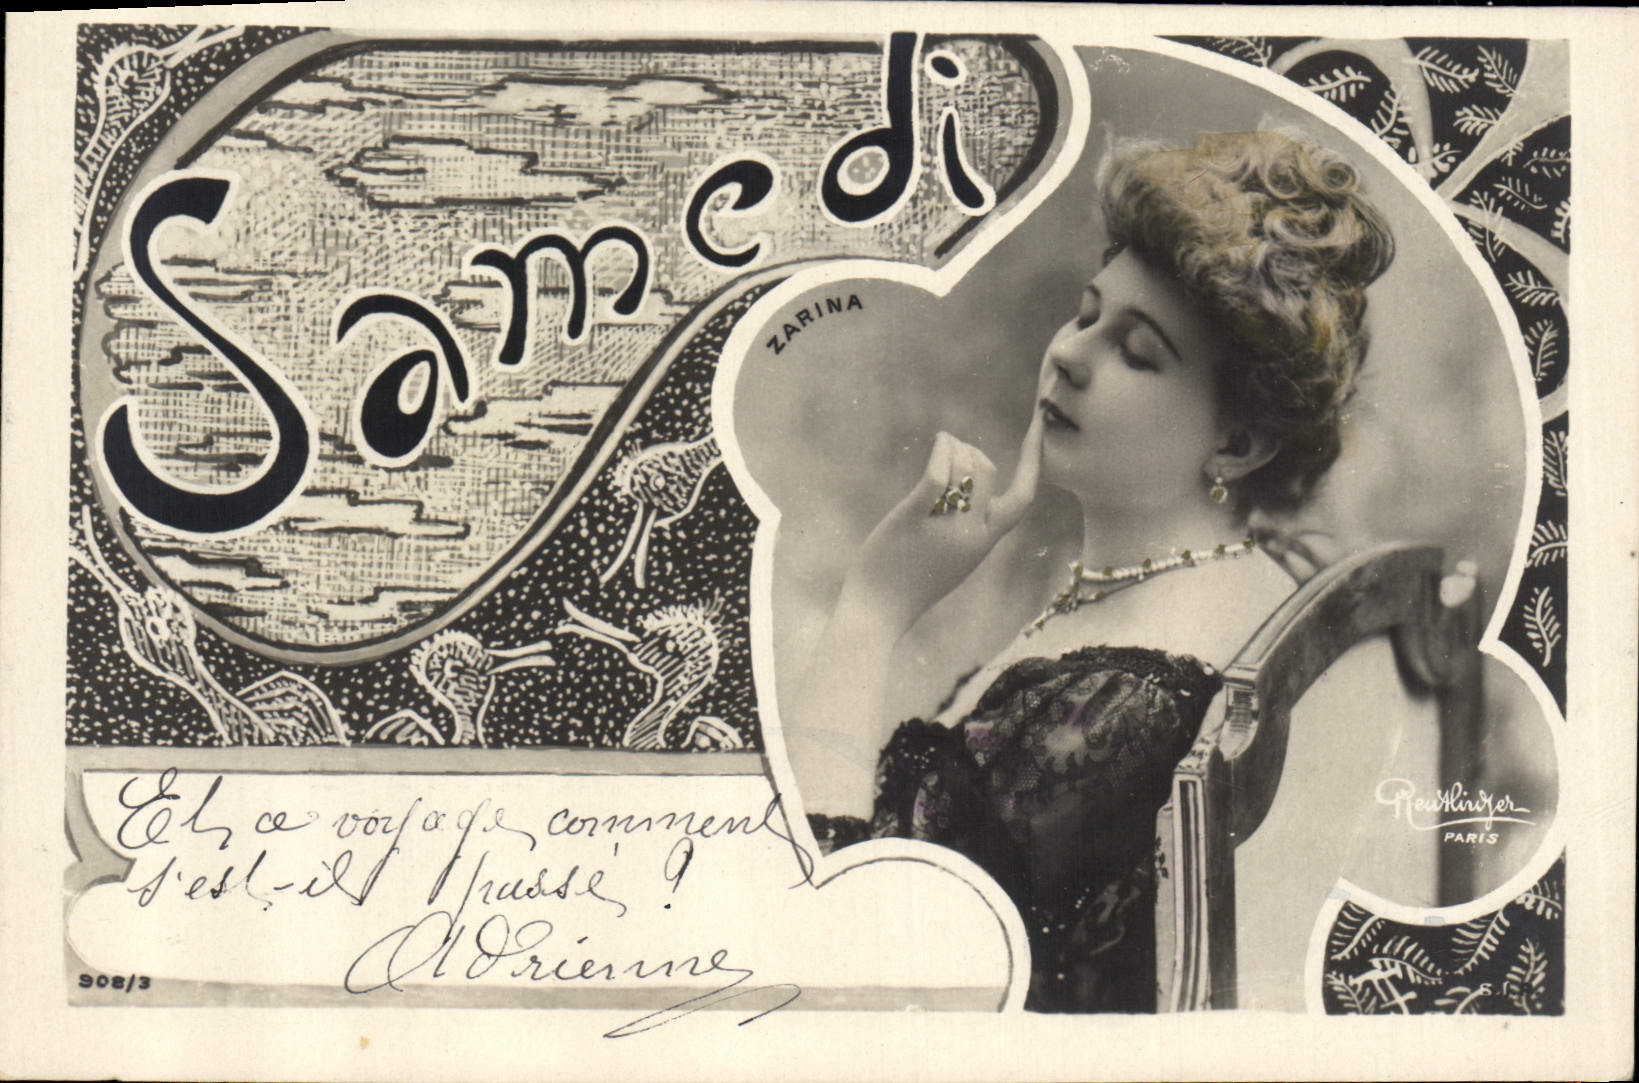 Samedi
ZARINA
Et ce voyage comment
s'est-il passé ?
Adrienne
908/3
Reutlinger
PARIS
S.I.P.